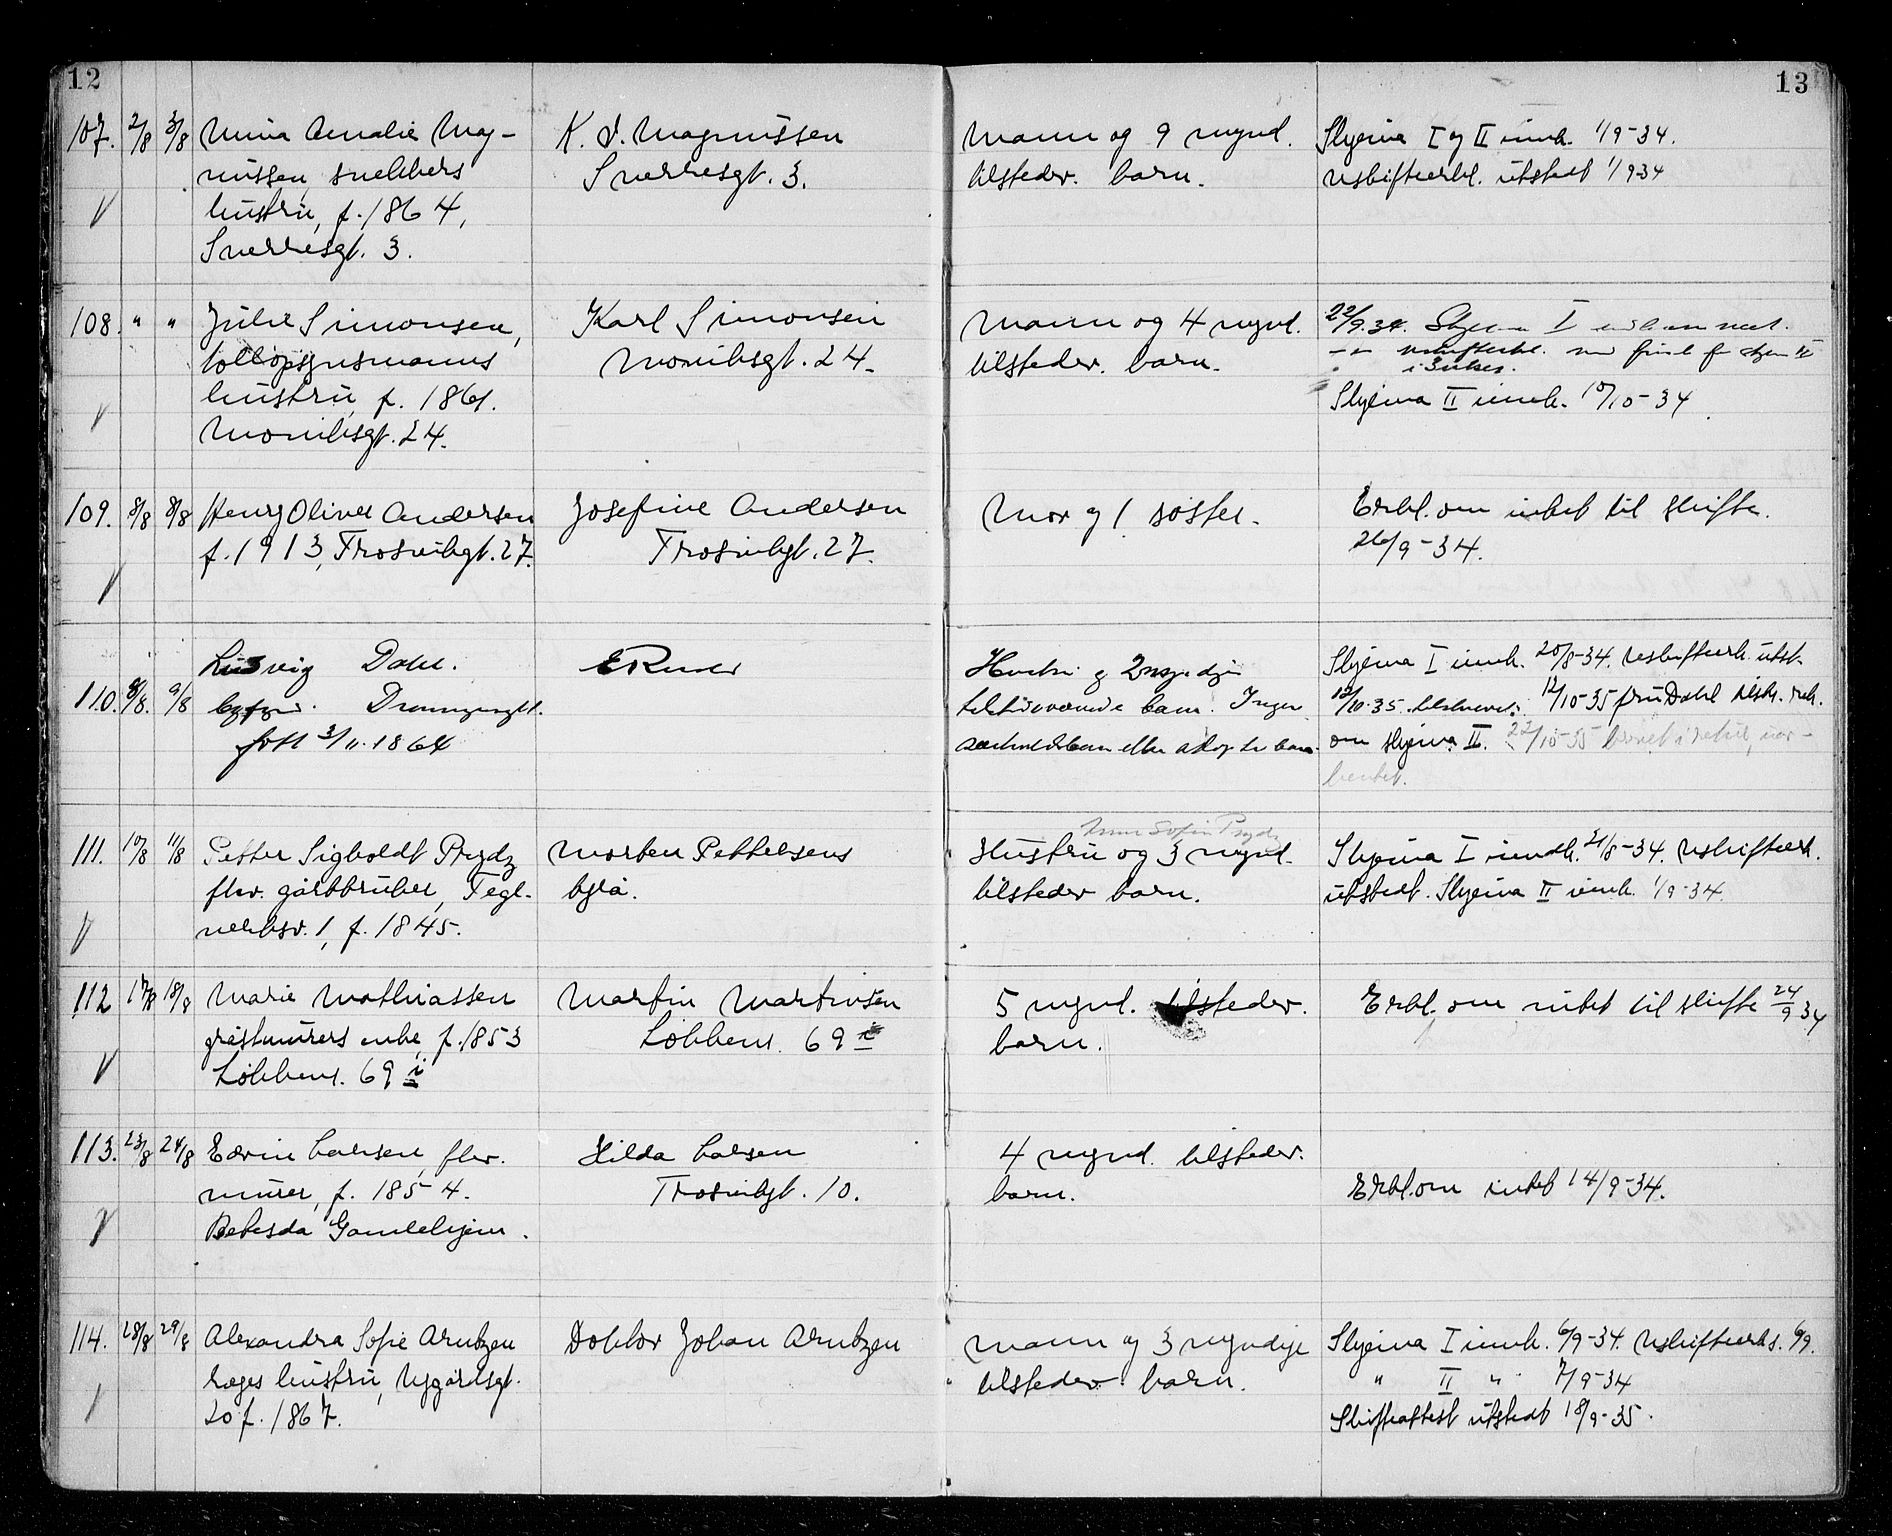 12
13
107. 2/8 3/8 Mina Amalie Mag- K. J. Magnussen Mann og 9 mynd. Skjema I og II innk. 1/9-34.
nussen, snekkers Sverresgt. 3. tilstedev. barn. Uskifteerkl. utstedt 1/9-34
hustru, f. 1864,
Sverresgt. 3.
108. " " Julie Simonsen, Karl Simonsen Mann og 4 mynd. 22/9.34. Skjema I
tolloppsynsmanns Munkegt. 24. tilstedev. barn.
hustru f. 1861. Skjema II innk. 10/10-34
Munkegt. 24.
109. 8/8 8/8 Henry Oliver Andersen Josefine Andersen Mor og 1 søster. Erkl. om intet til skifte.
f. 1913, Trosvikgt. 27. Trosvikgt. 27. 26/9-34.
Ludvig Dahl. Hustru og 2 myndige Skjema I innk. 20/8-34. Uskifteerk. utst.
110. 8/8. 9/8 tilstedeværende barn. Ingen 12/10-35 fru Dahl tilskr.
født 3/11.1864 særkullsbarn eller adoptivbarn. om skjema II. 22/10-35 brevet i retur, uav-
hentet.
Anna Sofie Prydz
111. 10/8 11/8 Petter Sigholdt Prydz Morten Pettersens Hustru og 3 mynd. Skjema I innk. 21/8-34. Uskifteerk.
fhv. gårdbruker, Tegl- byrå. tilstedev barn. utstedt. Skjema II innk. 1/9-34.
verksv. 1, f. 1845.
112 17/8 18/8 Marie Mathiassen Martin Martinsen 5 mynd. tilstedev. Erkl. om intet til skifte 24/9 34
gråstmurers enke, f. 1853 Løkkens. 69 i barn.
Løkkens. 69 i
113. 23/8 24/8 Edvin Larsen, fhv. Hilda Larsen 4 mynd. tilstedev.
murer, f. 1854. Trosvikgt. 10. barn. Erkl. om intet 14/9-34.
Betesda Gamlehjem.
114. 28/8 29/8 Alexandra Sofie Arntzen Doktor Johan Arntzen Mann og 3 myndige Skjema I innk. 6/9-34. Uskifteerkl. 6/9.
læges hustru, Nygårdsgt. tilstedev. barn. " II " 7/9-34
20 f. 1867. Skifteattest utstedt 18/9-35.